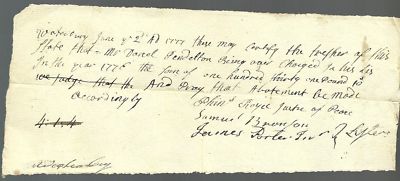 Waterbury June ye 2d AD 1777 these may certify the tresher of this
State that Mr Daniel Pendelton Being over Charged in his List
In the year 1776 the sum of one hundred thirty one Pound 10
we Judge that the And Pray that Abatement be made
accordingly
Phins Royce Justs of Peace
Samuel Bronson
4-14-4
Listers
Waterbury